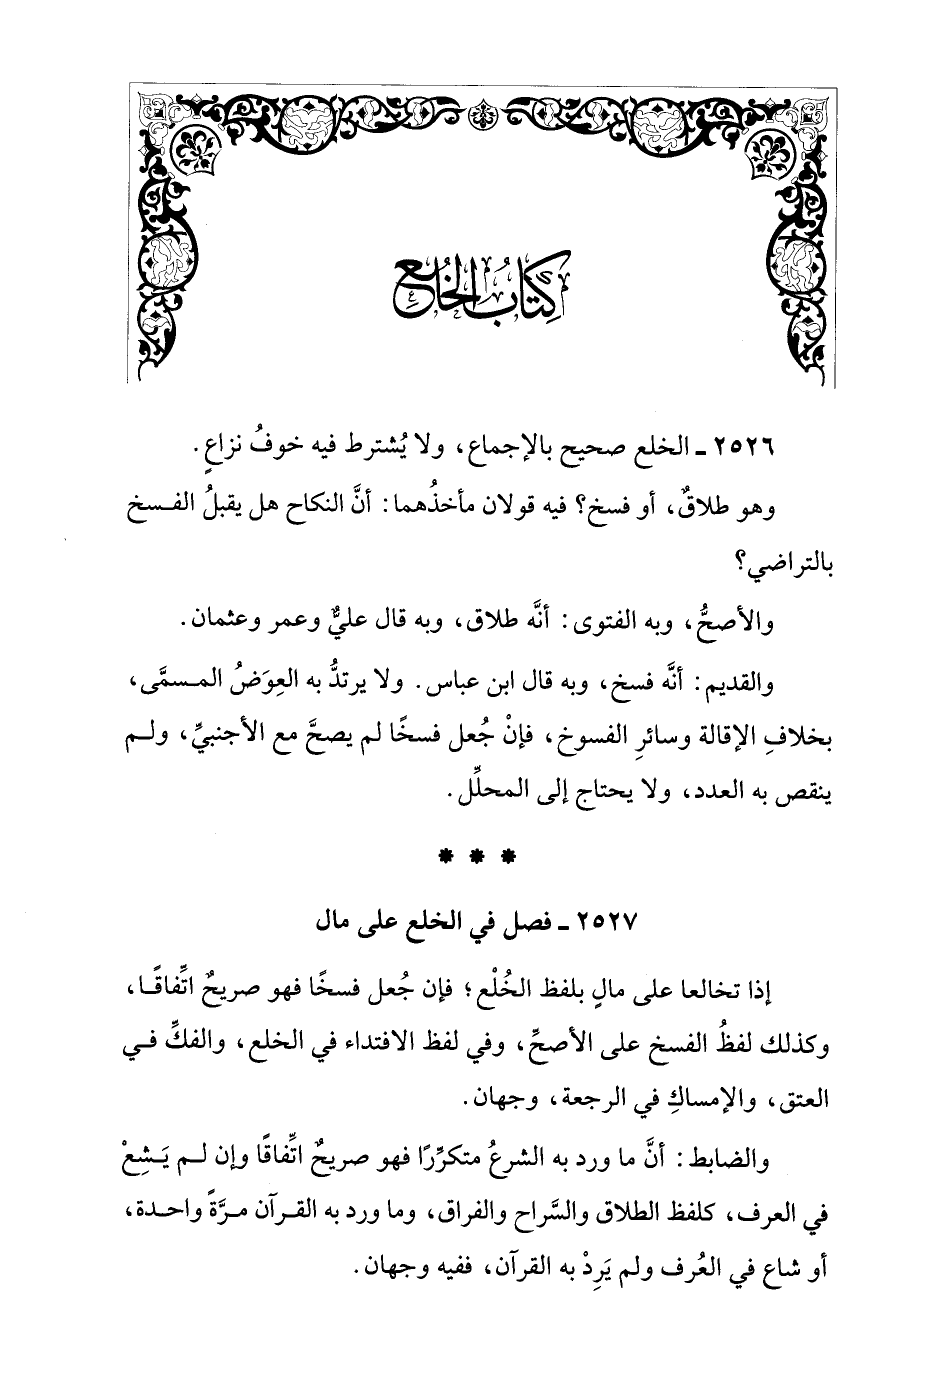 كتاب الخلع
٢٥٢٦ ـ الخلع صحيح بالإجماع، ولا يُشترط فيه خوفُ نزاعٍ.
وهو طلاقٌ، أو فسخ؟ فيه قولان مأخذُهما: أنَّ النكاح هل يقبلُ الفسخ
بالتراضي؟
والأصحُّ، وبه الفتوى: أنَّه طلاق، وبه قال عليٌّ وعمر وعثمان.
والقديم: أنَّه فسخ، وبه قال ابن عباس. ولا يرتدُّ به العِوَضُ المسمَّى،
بخلافِ الإقالة وسائرِ الفسوخ، فإنْ جُعل فسخًا لم يصحَّ مع الأجنبيِّ، ولم
ينقص به العدد، ولا يحتاج إلى المحلِّل.
* * *
٢٥٢٧ ـ فصل في الخلع على مال
إذا تخالعا على مالٍ بلفظ الخُلْع؛ فإن جُعل فسخًا فهو صريحٌ اتِّفاقًا،
وكذلك لفظُ الفسخ على الأصحِّ، وفي لفظ الافتداء في الخلع، والفكِّ في
العتق، والإمساكِ في الرجعة، وجهان.
والضابط: أنَّ ما ورد به الشرعُ متكرِّرًا فهو صريحٌ اتِّفاقًا وإن لم يَشِعْ
في العرف، كلفظ الطلاق والسَّراح والفراق، وما ورد به القرآن مرَّةً واحدة،
أو شاع في العُرف ولم يَرِدْ به القرآن، ففيه وجهان.